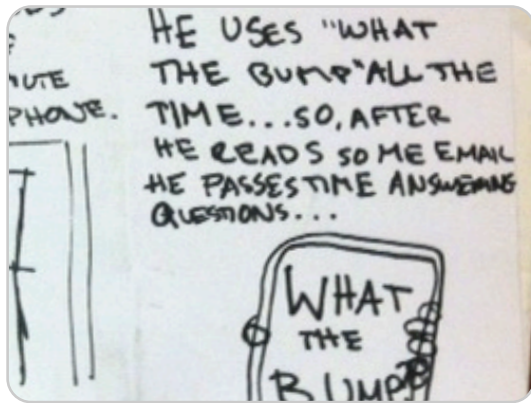 UTE
PHONE.
HE USES "WHAT
THE BUMP" ALL THE
TIME...SO, AFTER
HE READS SOME EMAIL
HE PASSES TIME ANSWERING
QUESTIONS...
WHAT
THE
BUMP?